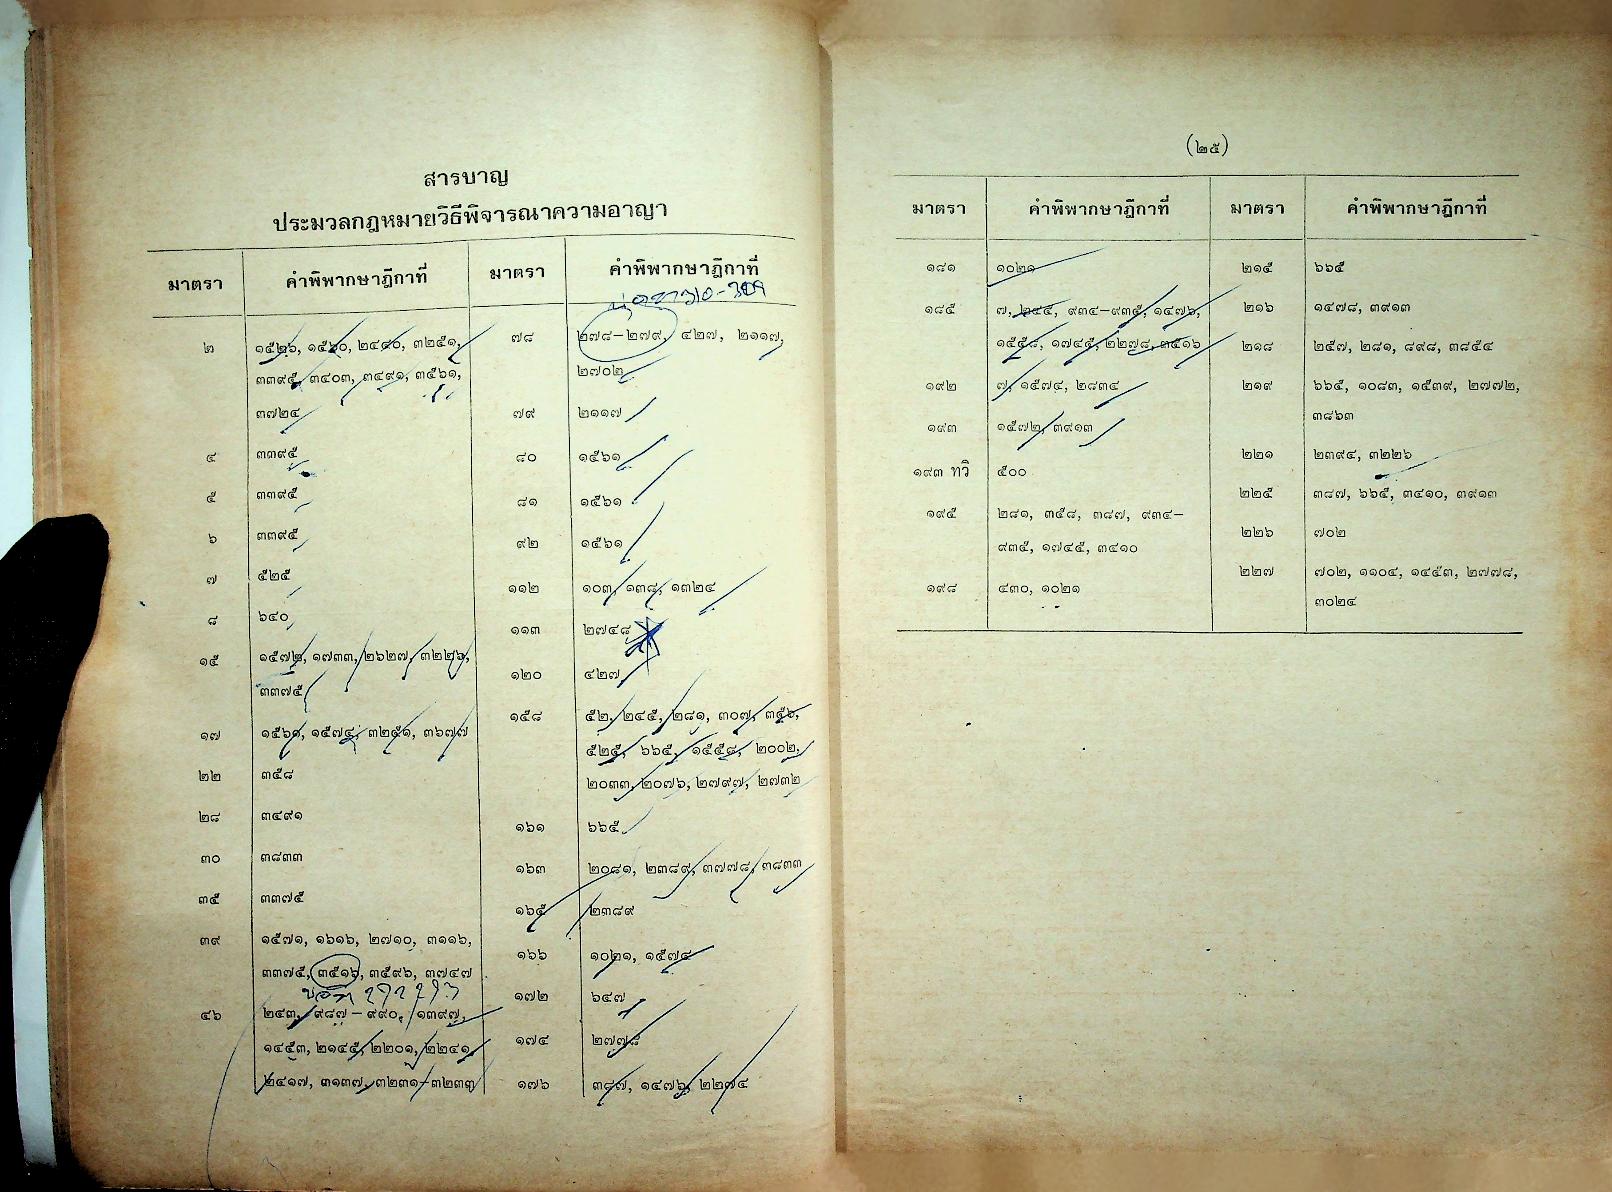 สารบาญ
ประมวลกฎหมายวิธีพิจารณาความอาญา
มาตรา คำพิพากษาฎีกาที่ มาตรา คำพิพากษาฎีกาที่
๒ ๑๕๒๖, ๑๕๖๐, ๒๔๔๐, ๓๒๕๑,
๓๓๙๕, ๓๔๐๓, ๓๔๙๑, ๓๕๖๑,
๓๗๒๔
๔ ๓๓๙๕
๕ ๓๓๙๕
๖ ๓๓๙๕
๗ ๕๒๕
๘ ๖๔๐
๑๕ ๑๕๗๒, ๑๗๓๓, ๒๖๒๗, ๓๒๒๖,
๓๓๗๕
๑๗ ๑๕๖๑, ๑๕๗๔, ๓๒๕๑, ๓๖๗๗
๒๒ ๓๕๘
๒๘ ๓๔๙๑
๓๐ ๓๘๓๓
๓๕ ๓๓๗๕
๓๙ ๑๕๗๑, ๑๖๑๖, ๒๗๑๐, ๓๑๑๖,
๓๓๗๕, ๓๕๑๖, ๓๕๙๖, ๓๗๔๗
๔๖ ๒๔๓, ๙๘๗-๙๙๐, ๑๓๙๗,
๑๔๕๓, ๒๑๔๕, ๒๒๐๑, ๒๒๔๑,
๒๔๑๗, ๓๑๓๗, ๓๒๓๑-๓๒๓๓
๗๘ ๒๗๘-๒๗๙, ๔๒๗, ๒๑๑๗,
๒๗๐๒
๗๙ ๒๑๑๗
๘๐ ๑๕๖๑
๘๑ ๑๕๖๑
๙๒ ๑๕๖๑
๑๑๒ ๑๐๓, ๑๓๘, ๑๓๒๔
๑๑๓ ๒๗๔๘
๑๒๐ ๔๒๗
๑๕๘ ๕๒, ๒๔๕, ๒๘๑, ๓๐๗, ๓๕๖,
๕๒๕, ๖๖๕, ๑๕๕๘, ๒๐๐๒,
๒๐๓๓, ๒๐๗๖, ๒๗๙๗, ๒๗๓๒
๑๖๑ ๖๖๕
๑๖๓ ๒๐๘๑, ๒๓๘๙, ๓๗๗๘, ๓๘๓๓
๑๖๕ ๒๓๘๙
๑๖๖ ๑๐๒๑, ๑๕๗๔
๑๗๒ ๖๔๗
๑๗๔ ๒๗๗๘
๑๗๖ ๓๘๗, ๑๔๗๖, ๒๒๗๔
(๒๕)
มาตรา คำพิพากษาฎีกาที่ มาตรา คำพิพากษาฎีกาที่
๑๘๑ ๑๐๒๑
๑๘๕ ๗, ๒๔๕, ๙๓๔-๙๓๕, ๑๔๗๖,
๑๕๕๘, ๑๗๔๕, ๒๒๗๘, ๓๕๑๖
๑๙๒ ๗, ๑๕๗๔, ๒๘๓๔
๑๙๓ ๑๕๗๒, ๓๙๑๓
๑๙๓ ทวิ ๕๐๐
๑๙๕ ๒๘๑, ๓๕๘, ๓๘๗, ๙๓๔-
๙๓๕, ๑๗๔๕, ๓๔๑๐
๑๙๘ ๔๓๐, ๑๐๒๑
๒๑๕ ๖๖๕
๒๑๖ ๑๔๗๘, ๓๙๑๓
๒๑๘ ๒๕๗, ๒๘๑, ๘๙๘, ๓๘๕๔
๒๑๙ ๖๖๕, ๑๐๘๓, ๑๕๓๙, ๒๗๗๒,
๓๘๖๓
๒๒๑ ๒๓๙๔, ๓๒๒๖
๒๒๕ ๓๘๗, ๖๖๕, ๓๔๑๐, ๓๙๑๓
๒๒๖ ๗๐๒
๒๒๗ ๗๐๒, ๑๑๐๔, ๑๔๕๓, ๒๗๗๘,
๓๐๒๔